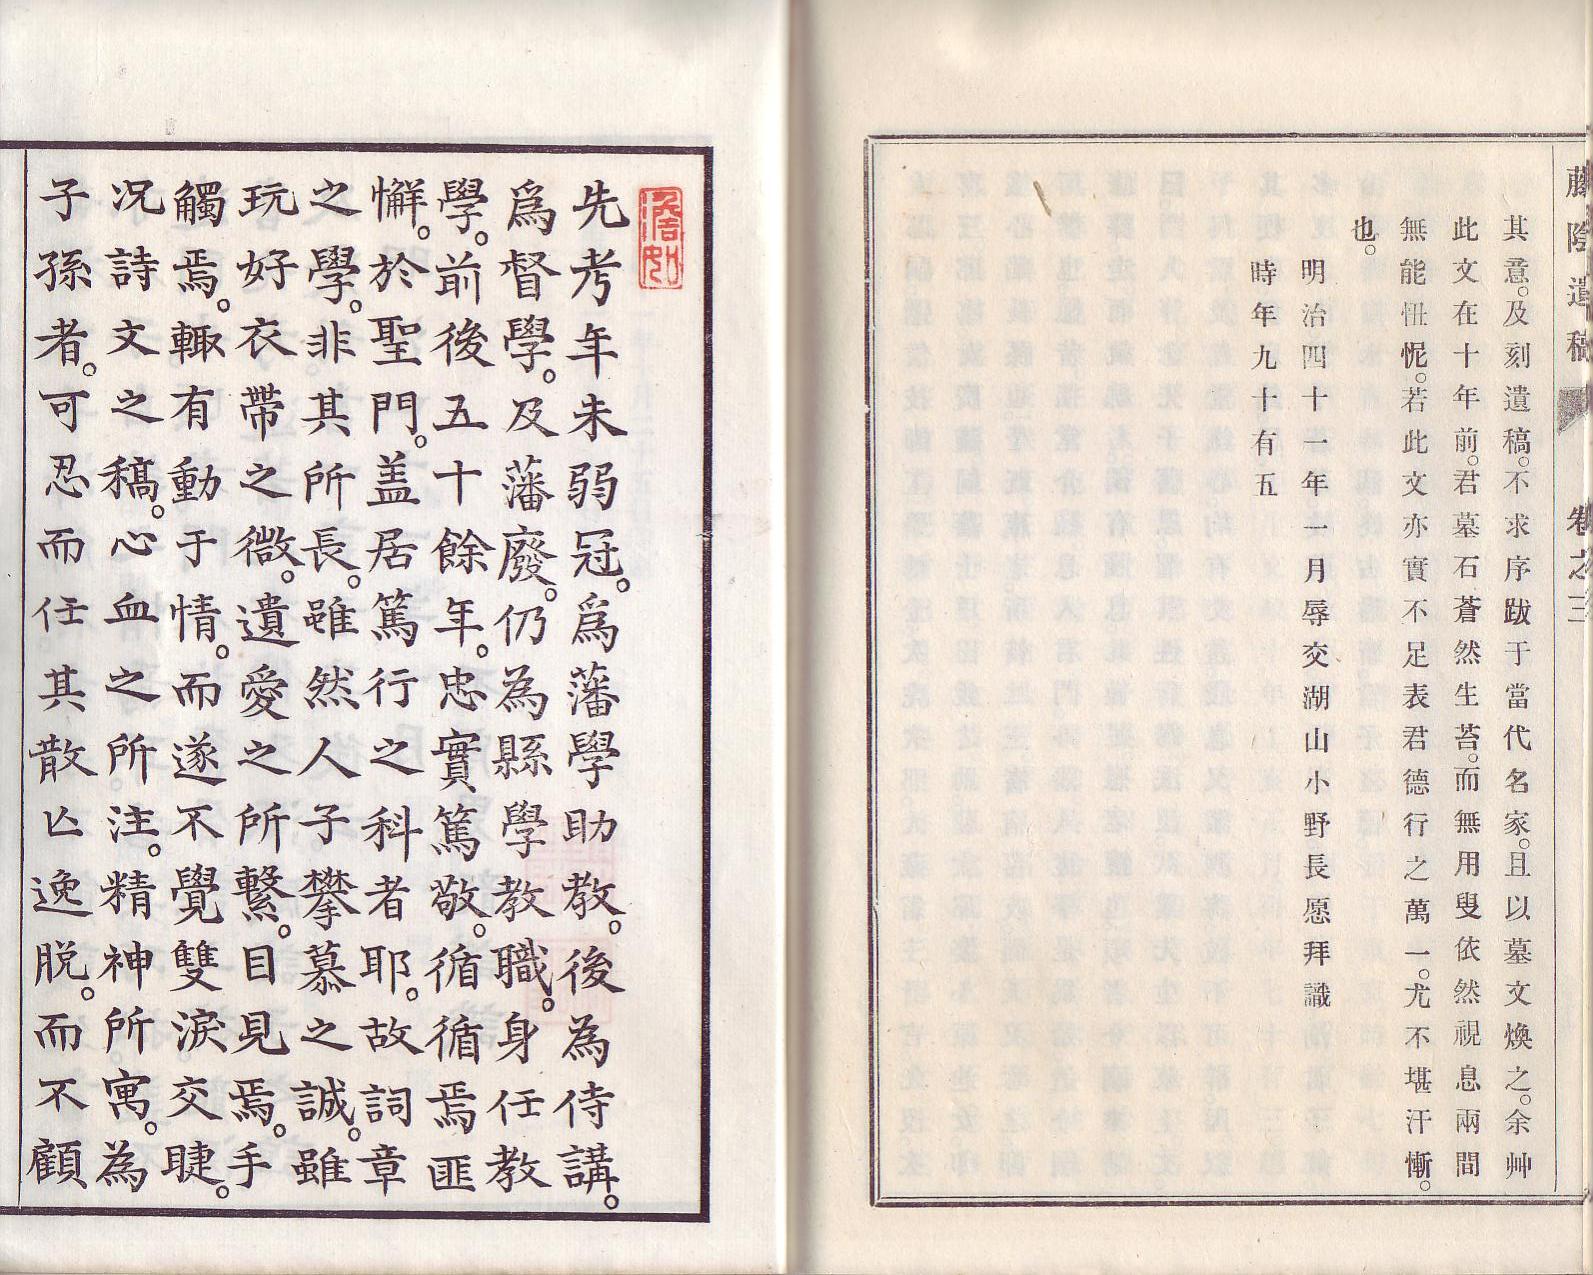 藤陰遺稿 卷之三
其意。及刻遺稿。不求序跋于當代名家。且以墓文煥之。余艸
此文在十年前。君墓石蒼然生苔。而無用叟依然視息兩間
無能忸怩。若此文亦實不足表君德行之萬一。尤不堪汗慚。
也。
明治四十一年一月辱交湖山小野長愿拜識
時年九十有五
澹如
先考年未弱冠。爲藩學助教。後為侍講。
爲督學。及藩廢。仍為縣學教職。身任教
學。前後五十餘年。忠實篤敬。循循焉匪
懈。於聖門。盖居篤行之科者耶。故詞章
之學。非其所長。雖然人子攀慕之誠。雖
玩好衣帶之微。遺愛之所繫。目見焉。手
觸焉。輙有動于情。而遂不覺雙淚交睫。
况詩文之稿。心血之所注。精神所寓。為
子孫者。可忍而任其散亾逸脱。而不顧